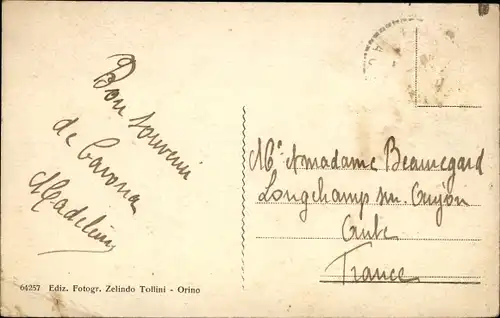 Bon souvenir
de Cavona
Madeleine
Mr et madame Beauregard
Longchamp sur Aujon
Aube
France
64257 Ediz. Fotogr. Zelindo Tollini - Orino